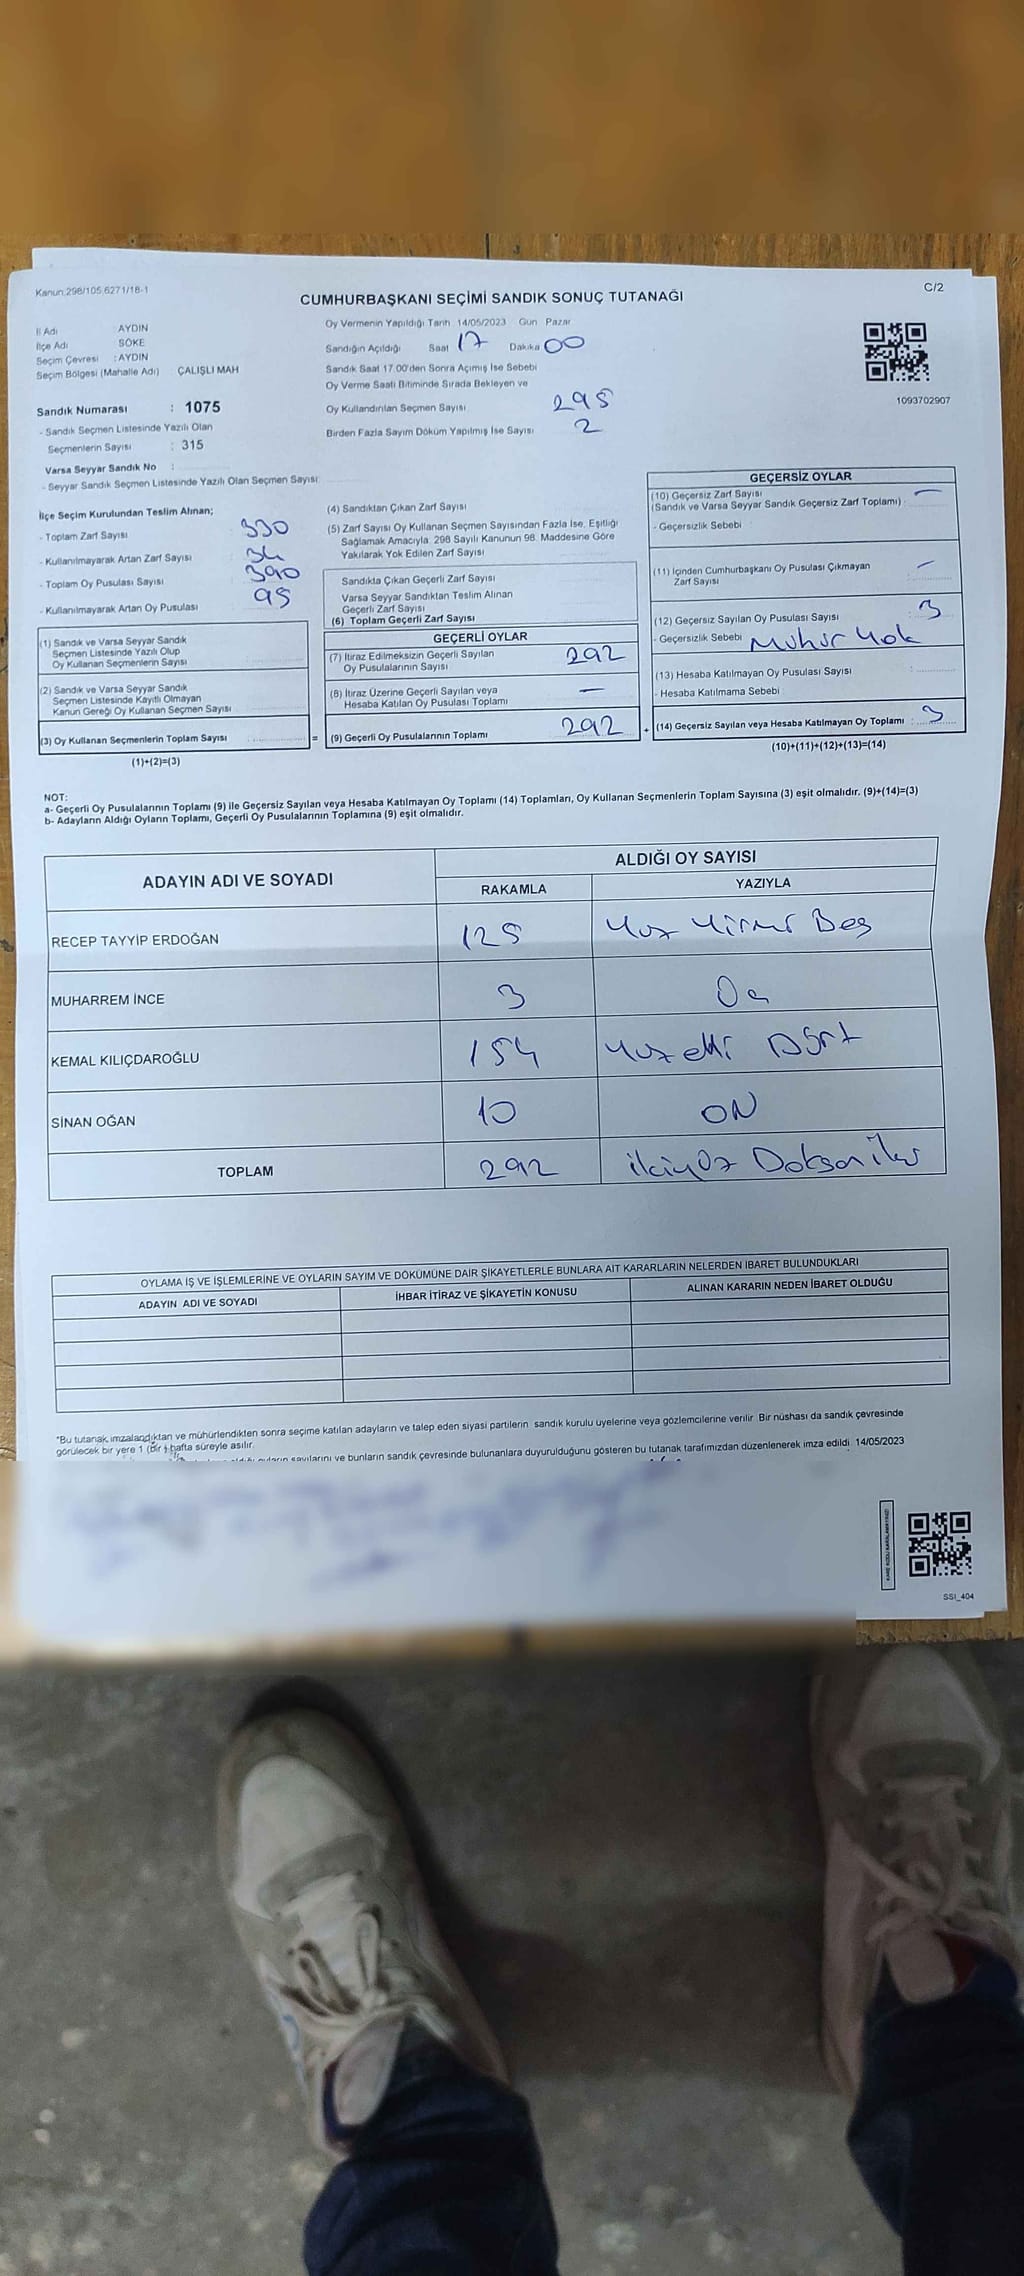 Kanun:298/105,6271/18-1
C/2
CUMHURBAŞKANI SEÇİMİ SANDIK SONUÇ TUTANAĞI
İl Adı : AYDIN
İlçe Adı : SÖKE
Seçim Çevresi : AYDIN
Seçim Bölgesi (Mahalle Adı) ÇALIŞLI MAH
Sandık Numarası : 1075
- Sandık Seçmen Listesinde Yazılı Olan
Seçmenlerin Sayısı : 315
Varsa Seyyar Sandık No :
- Seyyar Sandık Seçmen Listesinde Yazılı Olan Seçmen Sayısı:
Oy Vermenin Yapıldığı Tarih 14/05/2023 Gün Pazar
Sandığın Açıldığı Saat 17 Dakika 00
Sandık Saat 17.00'den Sonra Açımış İse Sebebi
Oy Verme Saati Bitiminde Sırada Bekleyen ve
Oy Kullandırılan Seçmen Sayısı 295
Birden Fazla Sayım Döküm Yapılmış İse Sayısı 2
1093702907
İlçe Seçim Kurulundan Teslim Alınan;
- Toplam Zarf Sayısı 330
- Kullanılmayarak Artan Zarf Sayısı
- Toplam Oy Pusulası Sayısı 390
- Kullanılmayarak Artan Oy Pusulası 95
(1) Sandık ve Varsa Seyyar Sandık
Seçmen Listesinde Yazılı Olup
Oy Kullanan Seçmenlerin Sayısı
(2) Sandık ve Varsa Seyyar Sandık
Seçmen Listesinde Kayıtlı Olmayan
Kanun Gereği Oy Kullanan Seçmen Sayısı
(3) Oy Kullanan Seçmenlerin Toplam Sayısı =
(1)+(2)=(3)
(4) Sandıktan Çıkan Zarf Sayısı
(5) Zarf Sayısı Oy Kullanan Seçmen Sayısından Fazla İse, Eşitliği
Sağlamak Amacıyla, 298 Sayılı Kanunun 98. Maddesine Göre
Yakılarak Yok Edilen Zarf Sayısı
Sandıkta Çıkan Geçerli Zarf Sayısı
Varsa Seyyar Sandıktan Teslim Alınan
Geçerli Zarf Sayısı
(6) Toplam Geçerli Zarf Sayısı
GEÇERLİ OYLAR
(7) İtiraz Edilmeksizin Geçerli Sayılan
Oy Pusulalarının Sayısı 292
(8) İtiraz Üzerine Geçerli Sayılan veya
Hesaba Katılan Oy Pusulası Toplamı —
(9) Geçerli Oy Pusulalarının Toplamı 292 +
GEÇERSİZ OYLAR
(10) Geçersiz Zarf Sayısı —
(Sandık ve Varsa Seyyar Sandık Geçersiz Zarf Toplamı) :
- Geçersizlik Sebebi :
(11) İçinden Cumhurbaşkanı Oy Pusulası Çıkmayan —
Zarf Sayısı
(12) Geçersiz Sayılan Oy Pusulası Sayısı : 3
- Geçersizlik Sebebi Mühür Yok
(13) Hesaba Katılmayan Oy Pusulası Sayısı :
- Hesaba Katılmama Sebebi
(14) Geçersiz Sayılan veya Hesaba Katılmayan Oy Toplamı : 3
(10)+(11)+(12)+(13)=(14)
NOT:
a- Geçerli Oy Pusulalarının Toplamı (9) ile Geçersiz Sayılan veya Hesaba Katılmayan Oy Toplamı (14) Toplamları, Oy Kullanan Seçmenlerin Toplam Sayısına (3) eşit olmalıdır. (9)+(14)=(3)
b- Adayların Aldığı Oyların Toplamı, Geçerli Oy Pusulalarının Toplamına (9) eşit olmalıdır.
ADAYIN ADI VE SOYADI ALDIĞI OY SAYISI
RAKAMLA YAZIYLA
RECEP TAYYİP ERDOĞAN 125 Yüz Yirmi Beş
MUHARREM İNCE 3 Üç
KEMAL KILIÇDAROĞLU 154 Yüz elli Dört
SİNAN OĞAN 10 ON
TOPLAM 292 ikiyüz Doksan iki
OYLAMA İŞ VE İŞLEMLERİNE VE OYLARIN SAYIM VE DÖKÜMÜNE DAİR ŞİKAYETLERLE BUNLARA AİT KARARLARIN NELERDEN İBARET BULUNDUKLARI
ADAYIN ADI VE SOYADI İHBAR İTİRAZ VE ŞİKAYETİN KONUSU ALINAN KARARIN NEDEN İBARET OLDUĞU
*Bu tutanak, imzalandıktan ve mühürlendikten sonra seçime katılan adayların ve talep eden siyasi partilerin sandık kurulu üyelerine veya gözlemcilerine verilir. Bir nüshası da sandık çevresinde
görülecek bir yere 1 (bir) hafta süreyle asılır.
sayılarını ve bunların sandık çevresinde bulunanlara duyurulduğunu gösteren bu tutanak tarafımızdan düzenlenerek imza edildi. 14/05/2023
SSI_404